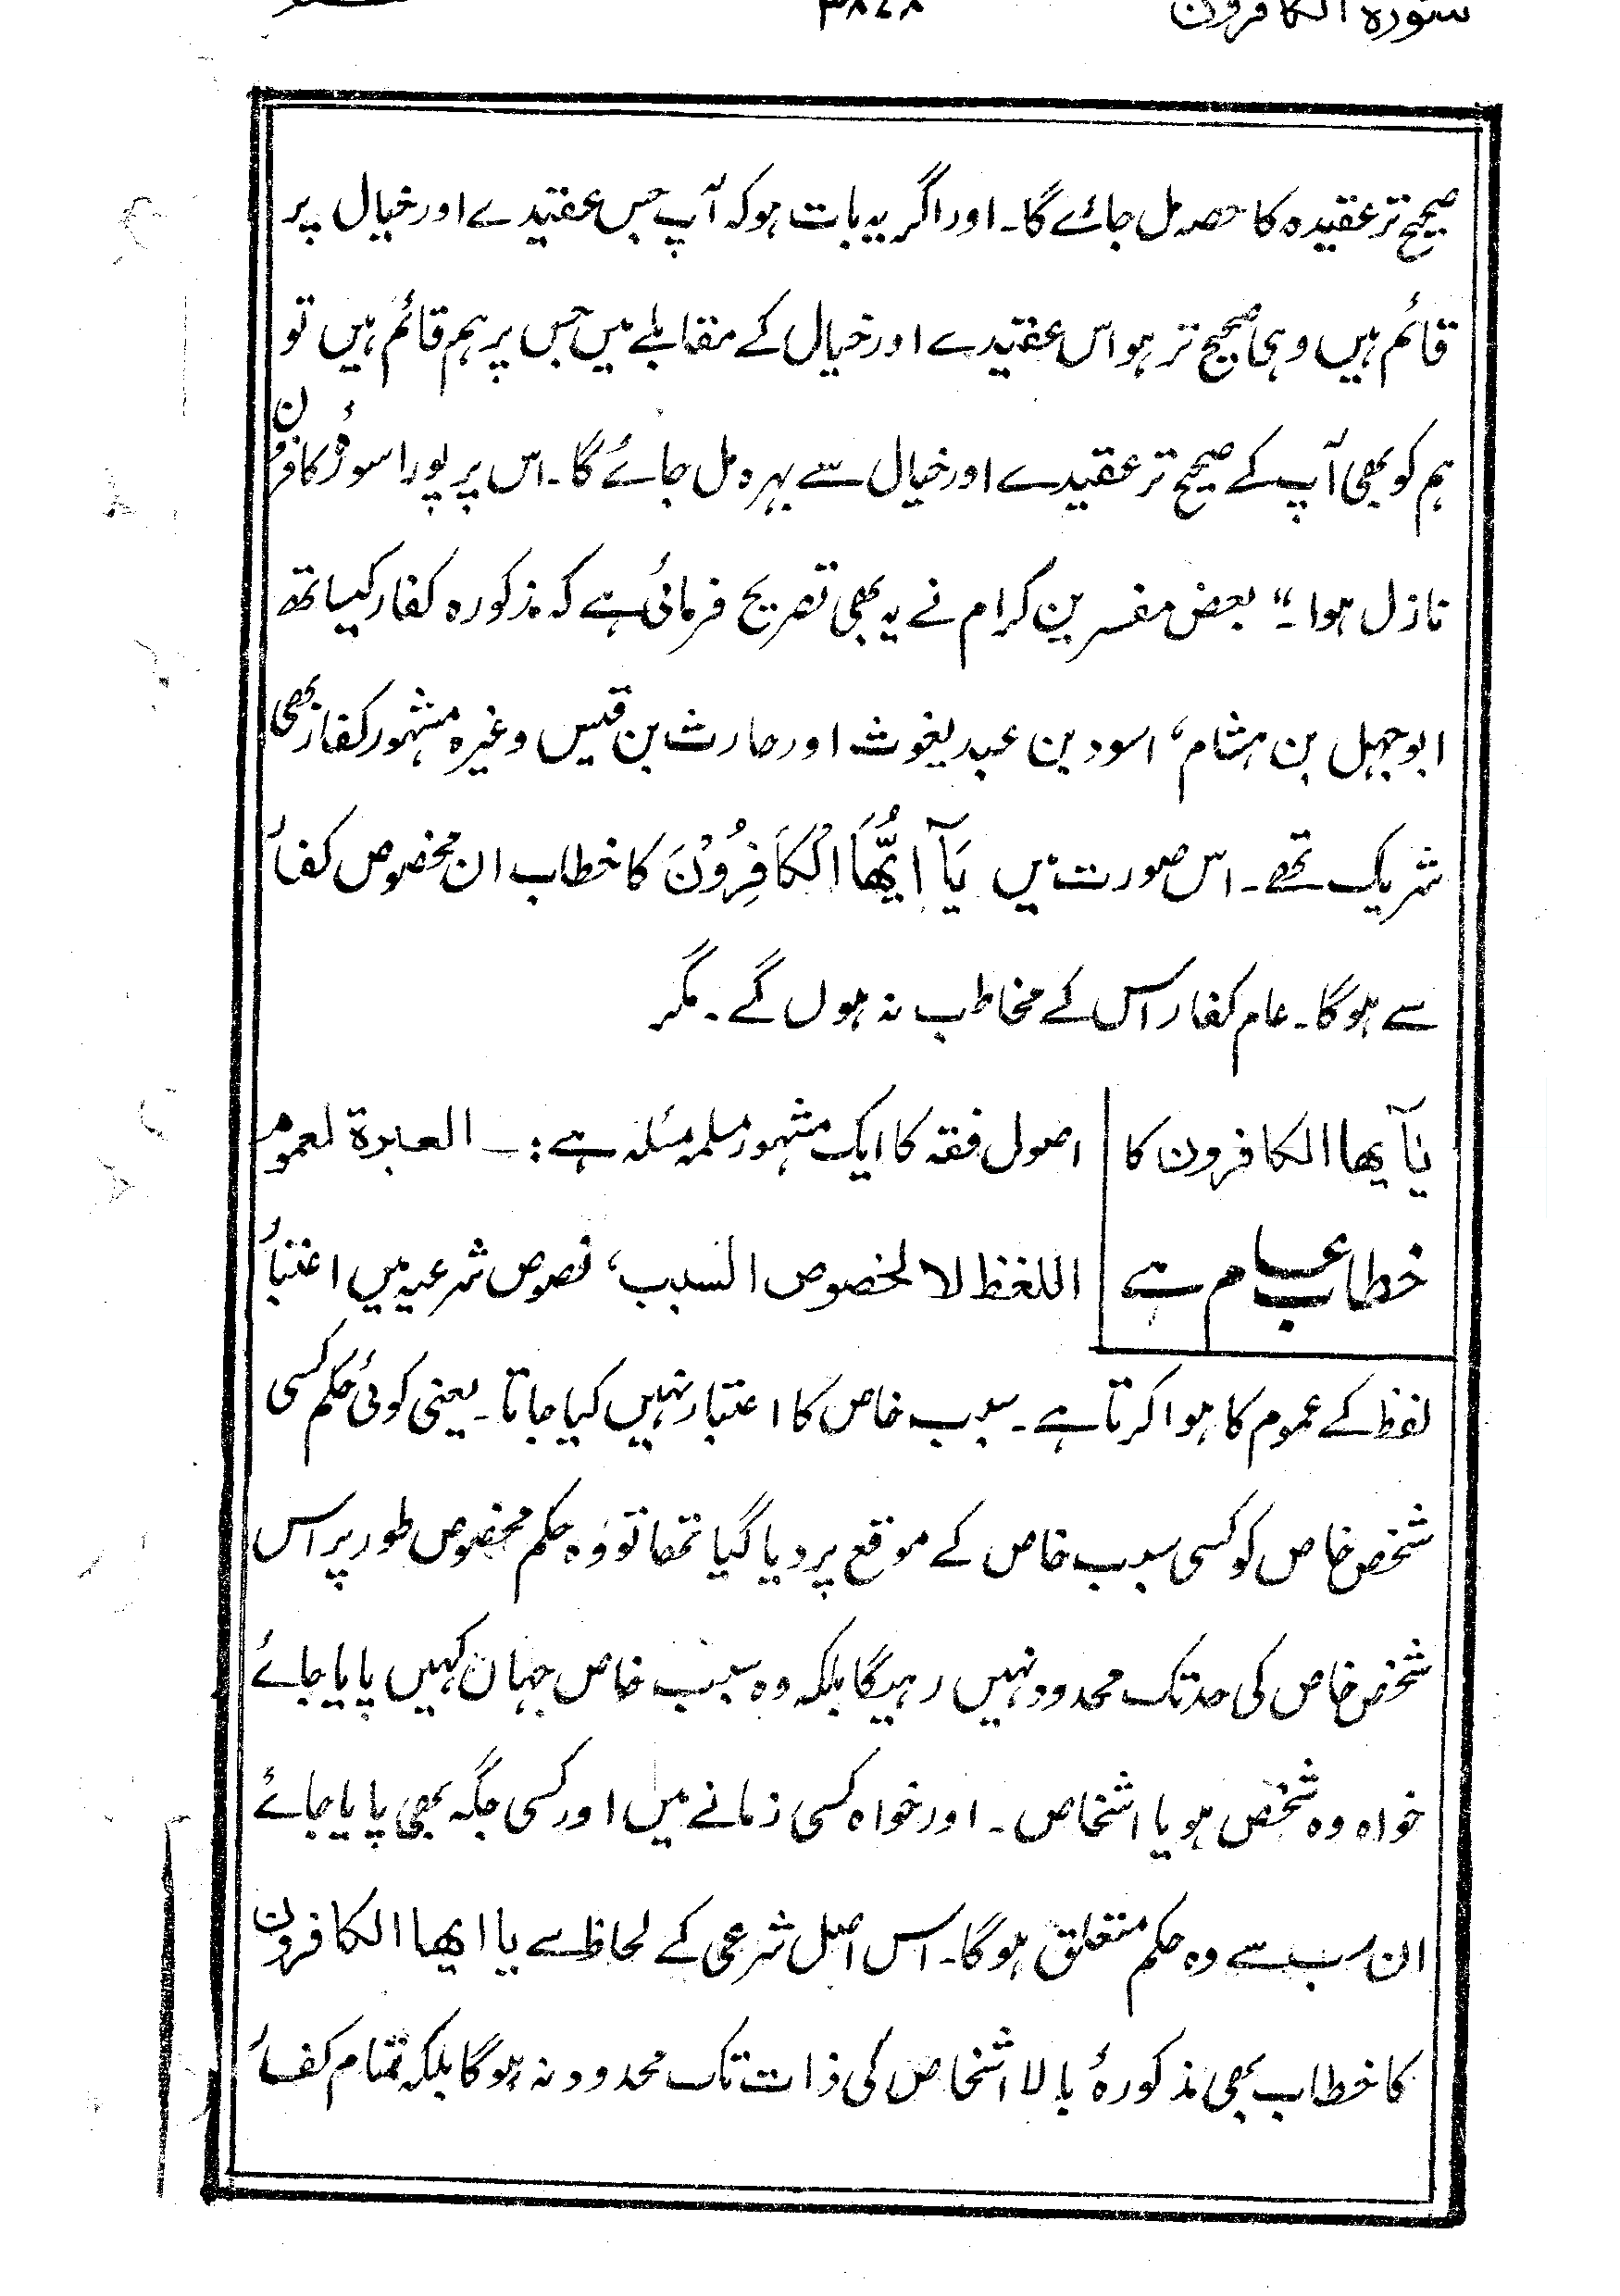 سورہ الکافرون ۳۸۷۸
صحیح تر عقیدہ کا حصہ مل جائے گا۔ اور اگر یہ بات ہو کہ آپ جس عقیدے اور خیال پر
قائم ہیں وہی صحیح تر ہو اس عقیدے اور خیال کے مقابلے میں جس پر ہم قائم ہیں تو
ہم کو بھی آپ کے صحیح تر عقیدے اور خیال سے بہرہ مل جائے گا۔ اس پر پورا سورۂ کافرون
نازل ہوا۔“ بعض مفسرین کرام نے یہ بھی تصریح فرمائی ہے کہ مذکورہ کفار کیساتھ
ابوجہل بن ہشام، اسود بن عبد یغوث اور حارث بن قیس وغیرہ مشہور کفار بھی
شریک تھے۔ اس صورت میں یَآ اَیُّھَا الْکَافِرُوْنَ کا خطاب ان مخصوص کفار
سے ہوگا۔ عام کفار اس کے مخاطب نہ ہوں گے۔ مگر
یٰآیھا الکافرون کا
خطاب عام ہے
اصول فقہ کا ایک مشہور مسلمہ مسئلہ ہے :۔ العبرۃ لعموم
اللفظ لا لخصوص السبب، نصوص شرعیہ میں اعتبار
لفظ کے عموم کا ہوا کرتا ہے۔ سبب خاص کا اعتبار نہیں کیا جاتا۔ یعنی کوئی حکم کسی
شخص خاص کو کسی سبب خاص کے موقع پر دیا گیا تھا تو وہ حکم مخصوص طور پر اس
شخص خاص کی حد تک محدود نہیں رہیگا بلکہ وہ سبب خاص جہان کہیں پایا جائے
خواہ وہ شخص ہو یا اشخاص۔ اور خواہ کسی زمانے میں اور کسی جگہ بھی پایا جائے
ان سب سے وہ حکم متعلق ہوگا۔ اس اصل شرعی کے لحاظ سے یا ایھا الکافرون
کا خطاب بھی مذکورۂ بالا اشخاص کی ذات تک محدود نہ ہوگا بلکہ تمام کفار